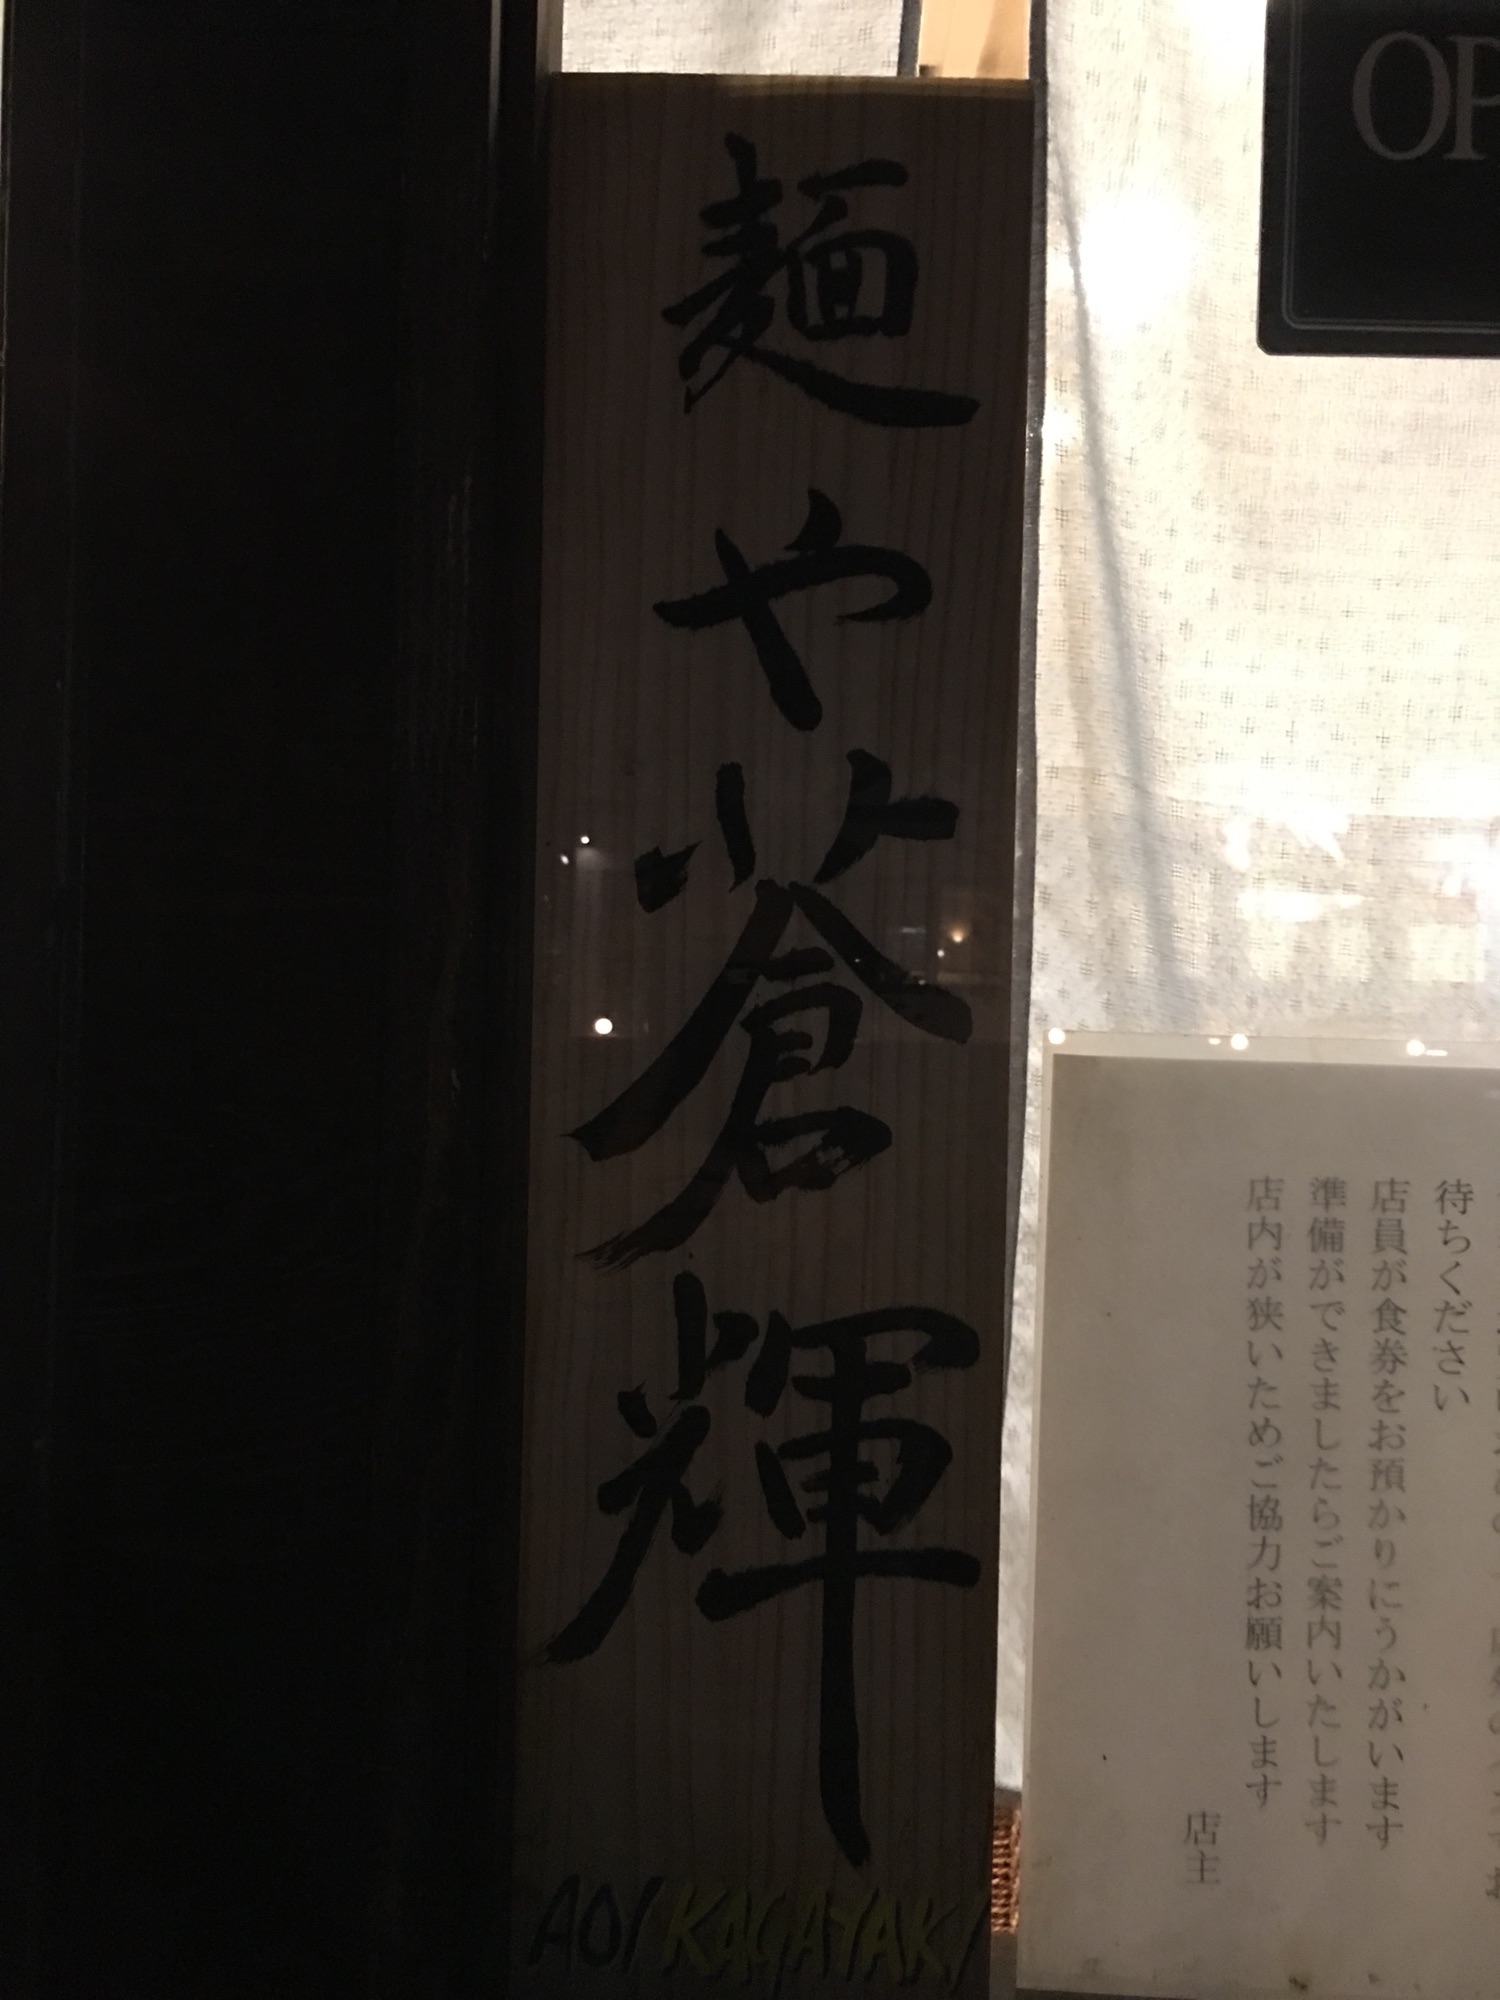 麺や蒼輝
AOI KAGAYAKI
OP
待ちください
店員が食券をお預かりにうかがいます
準備ができましたらご案内いたします
店内が狭いためご協力お願いします
店主